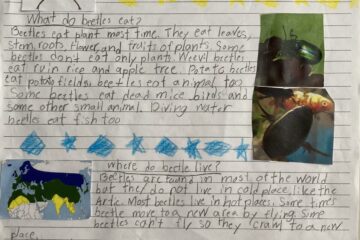 What do beetles eat?
Beetles eat plant most time. They eat leaves,
stem, roots, flower, and fruits of plants. Some
beetles don't eat only plants. Weevil beetles
eat ruin rice and apple tree. Potato beetles
eat potato fields. beetles eat animal too
Some beetles eat dead mice, birds and
some other small animal. Diving water
beetles eat fish too
where do beetle live?
Beetles are found in most of the world
but they do not live in cold place, like the
Artic. Most beetles live in hot places. Some times
beetle move to a new area by flying. Sime
beetles can't fly so they crawl to a new
place.